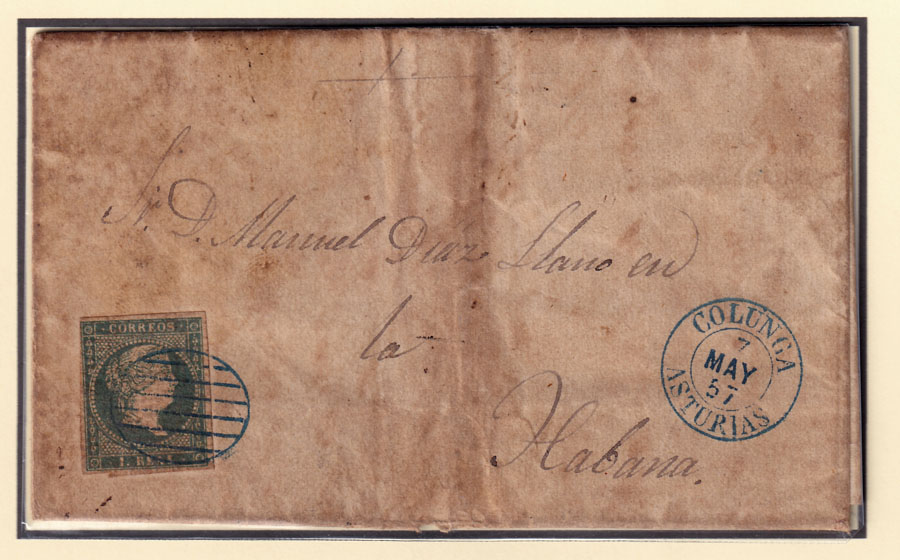 Sr. D. Manuel Diaz Llano en
la
Habana.
CORREOS
1 REAL
COLUNGA
7
MAY
57
ASTURIAS